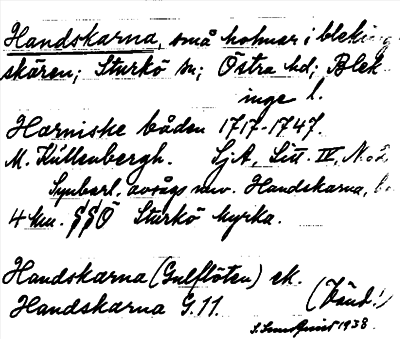 Handskarna, små holmar i bleking
skären; Sturkö sn; Östra hd; Blek
inge l.
Harniske båden 1717-1747.
M. Küllenbergh. LjA, Litt. IV, No 2
Synbarl. avsågs nuv. Handskarna,
4 km. §§Ö Sturkö kyrka.
Handskarna (Gulflöten) ek.
Handskarna G.11. (Vänd!)
1938.